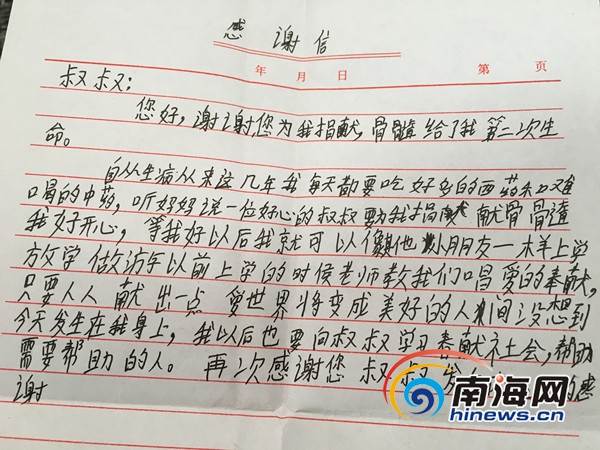 感谢信
年 月 日 第 页
叔叔:
您好,谢谢您为我捐献骨髓给了我第二次生
命。
自从生病以来这几年我每天都要吃好多的西药和又难
喝的中药,听妈妈说一位好心的叔叔要为我捐献骨髓
我好开心,等我好以后我就可以像其他小朋友一样上学
放学做游字以前上学的时候老师教我们唱爱的奉献,
只要人人献出一点爱世界将变成美好的人间没想到
今天发生在我身上,我以后也要向叔叔学习奉献社会,帮助
需要帮助的人。再次感谢您叔叔 的感
谢
南海网
hinews.cn